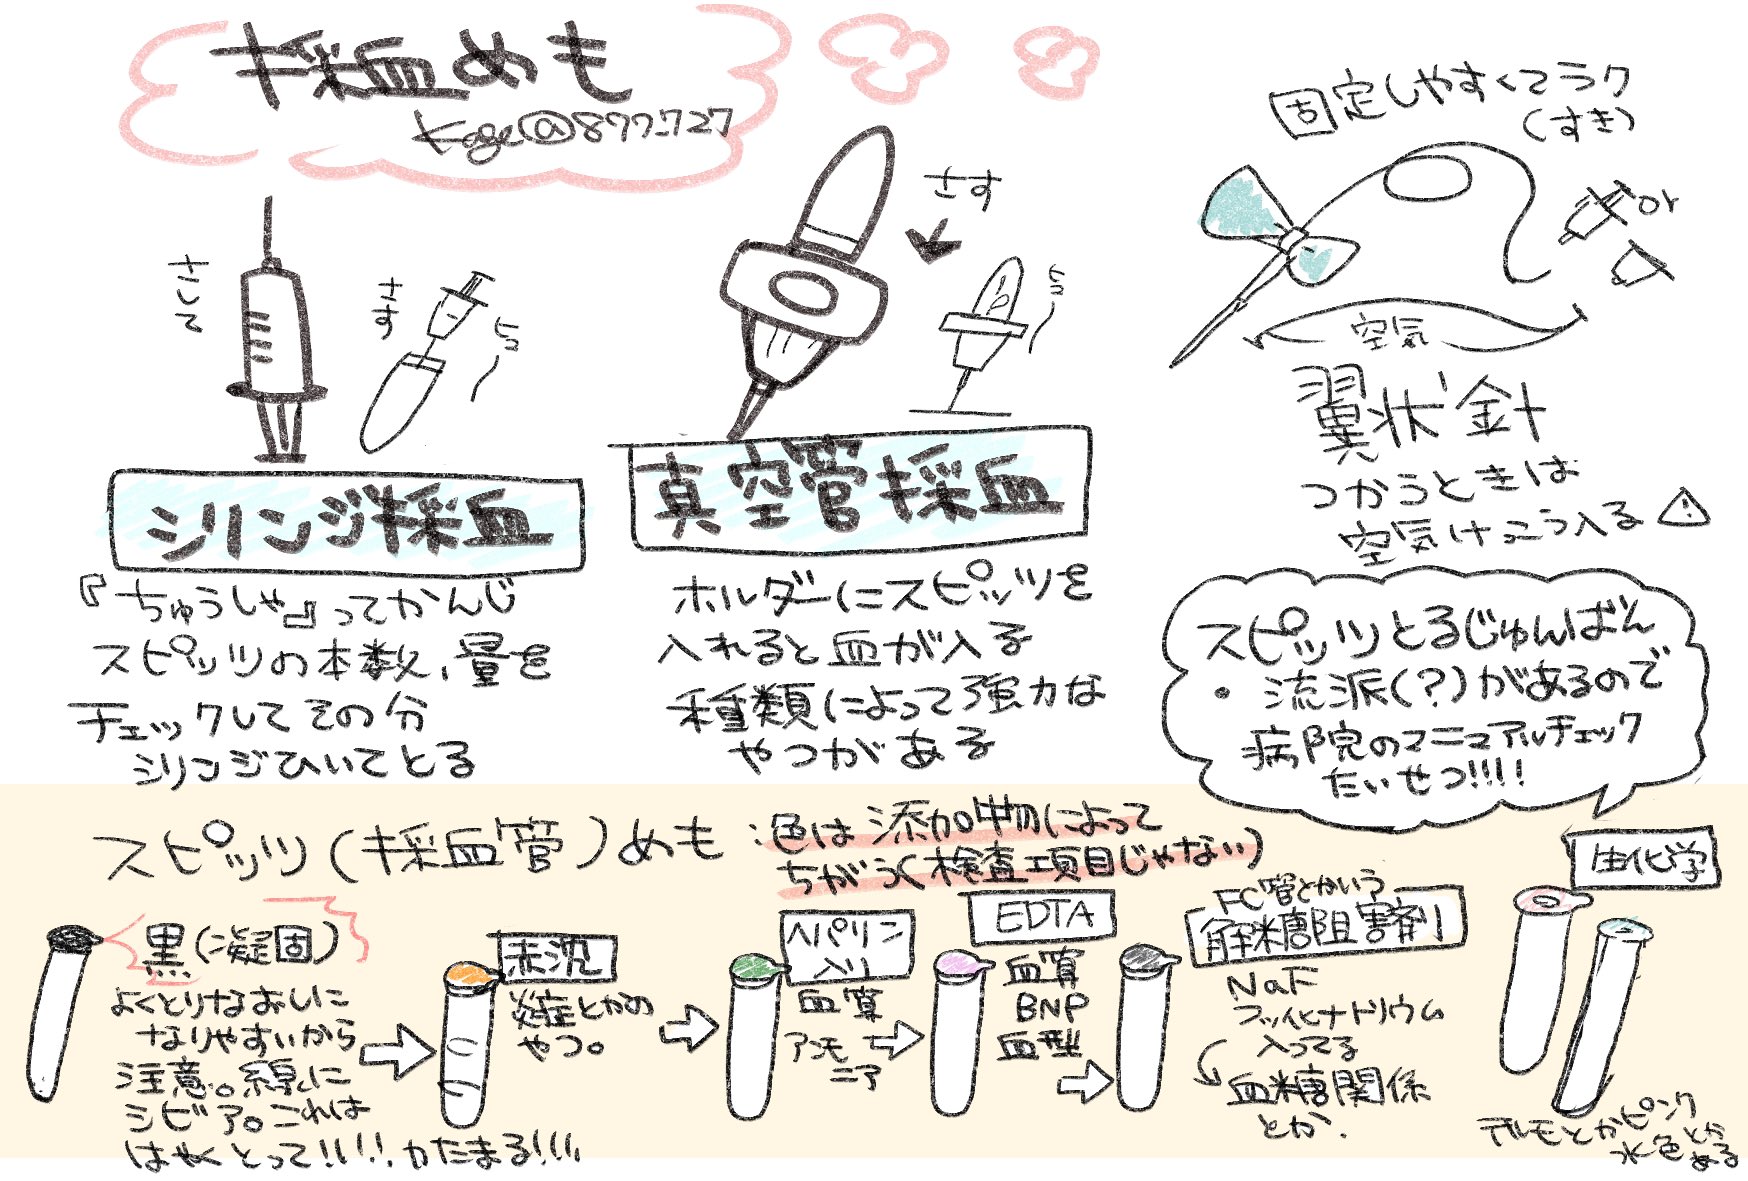 採血めも
Kage@877_727
さして
さす
シリンジ採血
『ちゅうしゃ』ってかんじ
スピッツの本数、量を
チェックしてその分
シリンジひいてとる
さす
真空管採血
ホルダーにスピッツを
入れると血が入る
種類によって強力な
やつがある
固定しやすくてラク
(すき)
or
空気
翼状針
つかうときは
空気けっこう入る
スピッツとるじゅんばん
・流派(?)があるので
病院のマニュアルチェック
たいせつ!!!!
スピッツ(採血管)めも:色は添加物によって
ちがう(検査項目じゃない)
黒(凝固)
よくとりなおしに
なりやすいから
注意。線に
シビア。これは
はやくとって!!!!かたまる!!!
赤沈
炎症とかの
やつ。
ヘパリン
入り
血算
アンモ
ニア
EDTA
血算
BNP
血型
FC管とかいう
解糖阻害剤
NaF
フッ化ナトリウム
入ってる
血糖関係
とか.
生化学
テルモとかピンク
水色とか
ある